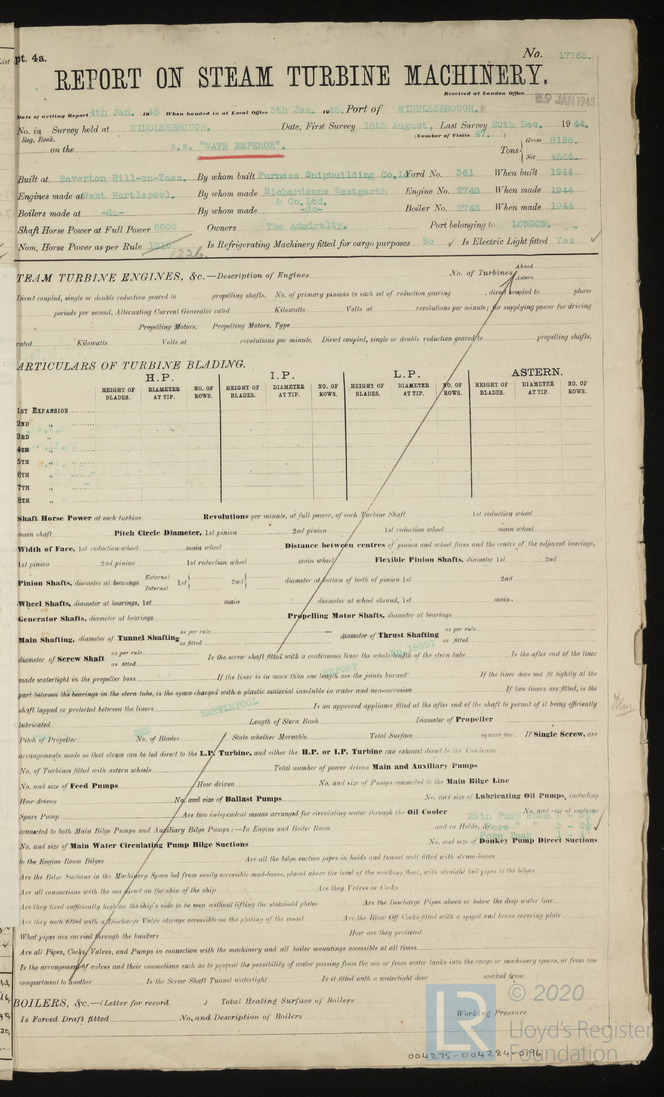 pt. 4a.
No. 17765.
REPORT ON STEAM TURBINE MACHINERY.
Received at London Office
9 JAN 1945
Date of writing Report 4th Jan. 1945 When handed in at Local Office 5th Jan. 1945. Port of MIDDLESBROUGH.
No. in Survey held at MIDDLESBROUGH. Date, First Survey 18th August, Last Survey 20th Dec. 1944.
Reg. Book. (Number of Visits 47.)
on the s.s. "WAVE EMPEROR". Tons Gross 8196. Net 4566.
Built at Haverton Hill-on-Tees. By whom built Furness Shipbuilding Co. Ld Yard No. 361 When built 1944
Engines made at West Hartlepool. By whom made Richardsons Westgarth & Co. Ltd. Engine No. 2748 When made 1944
Boilers made at -do- By whom made -do- Boiler No. 2748 When made 1944
Shaft Horse Power at Full Power 6800 Owners The Admiralty. Port belonging to LONDON.
Nom. Horse Power as per Rule 1226 Is Refrigerating Machinery fitted for cargo purposes No Is Electric Light fitted Yes
TEAM TURBINE ENGINES, &c.—Description of Engines No. of Turbines Ahead Astern
Direct coupled, single or double reduction geared to propelling shafts. No. of primary pinions to each set of reduction gearing direct coupled to phase
periods per second, Alternating Current Generator rated Kilowatts Volts at revolutions per minute; for supplying power for driving
Propelling Motors, Propelling Motors, Type
rated Kilowatts Volts at revolutions per minute. Direct coupled, single or double reduction geared to propelling shafts.
ARTICULARS OF TURBINE BLADING.
H.P. I.P. L.P. ASTERN.
HEIGHT OF BLADES. DIAMETER AT TIP. NO. OF ROWS. HEIGHT OF BLADES. DIAMETER AT TIP. NO. OF ROWS. HEIGHT OF BLADES. DIAMETER AT TIP. NO. OF ROWS. HEIGHT OF BLADES. DIAMETER AT TIP. NO. OF ROWS.
1ST EXPANSION
2ND „
3RD „
4TH „
5TH „
6TH „
7TH „
8TH „
Shaft Horse Power at each turbine Revolutions per minute, at full power, of each Turbine Shaft 1st reduction wheel
main shaft Pitch Circle Diameter, 1st pinion 2nd pinion 1st reduction wheel main wheel
Width of Face, 1st reduction wheel main wheel Distance between centres of pinion and wheel faces and the centre of the adjacent bearings,
1st pinion 2nd pinion 1st reduction wheel main wheel Flexible Pinion Shafts, diameter 1st 2nd
Pinion Shafts, diameter at bearings External Internal 1st 2nd diameter at bottom of teeth of pinion 1st 2nd
Wheel Shafts, diameter at bearings, 1st main diameter at wheel shroud, 1st main
Generator Shafts, diameter at bearings Propelling Motor Shafts, diameter at bearings
Main Shafting, diameter of Tunnel Shafting as per rule as fitted diameter of Thrust Shafting as per rule as fitted
diameter of Screw Shaft as per rule as fitted Is the screw shaft fitted with a continuous liner the whole length of the stern tube Is the after end of the liner
made watertight in the propeller boss If the liner is in more than one length are the joints burned If the liner does not fit tightly at the
part between the bearings in the stern tube, is the space charged with a plastic material insoluble in water and non-corrosive If two liners are fitted, is the
shaft lapped or protected between the liners Is an approved appliance fitted at the after end of the shaft to permit of it being efficiently
SEE HARTLEPOOL REPORT
lubricated Length of Stern Bush Diameter of Propeller
Pitch of Propeller No. of Blades State whether Moveable Total Surface square feet. If Single Screw, are
arrangements made so that steam can be led direct to the L.P. Turbine, and either the H.P. or I.P. Turbine can exhaust direct to the Condenser
No. of Turbines fitted with astern wheels Total number of power driven Main and Auxiliary Pumps
No. and size of Feed Pumps How driven No. and size of Pumps connected to the Main Bilge Line
How driven No. and size of Ballast Pumps No. and size of Lubricating Oil Pumps, including
Spare Pump Are two independent means arranged for circulating water through the Oil Cooler No. and size of suctions
connected to both Main Bilge Pumps and Auxiliary Bilge Pumps;—In Engine and Boiler Room and in Holds, &c.
No. and size of Main Water Circulating Pump Bilge Suctions No. and size of Donkey Pump Direct Suctions
to the Engine Room Bilges Are all the bilge suction pipes in holds and tunnel well fitted with strum-boxes
Are the Bilge Suctions in the Machinery Space led from easily accessible mud-boxes, placed above the level of the working floor, with straight tail pipes to the bilges
Are all connections with the sea direct on the skin of the ship Are they Valves or Cocks
Are they fixed sufficiently high on the ship's side to be seen without lifting the stokehold plates Are the Discharge Pipes above or below the deep water line
Are they each fitted with a Discharge Valve always accessible on the plating of the vessel Are the Blow Off Cocks fitted with a spigot and brass covering plate
What pipes are carried through the bunkers How are they protected
Are all Pipes, Cocks, Valves, and Pumps in connection with the machinery and all boiler mountings accessible at all times
Is the arrangement of valves and their connections such as to prevent the possibility of water passing from the sea or from water tanks into the cargo or machinery spaces, or from one
compartment to another Is the Screw Shaft Tunnel watertight Is it fitted with a watertight door worked from
BOILERS, &c.—(Letter for record ) Total Heating Surface of Boilers
Is Forced Draft fitted No. and Description of Boilers Working Pressure
LR © 2020
Lloyd's Register
Foundation
004275-004284-0196